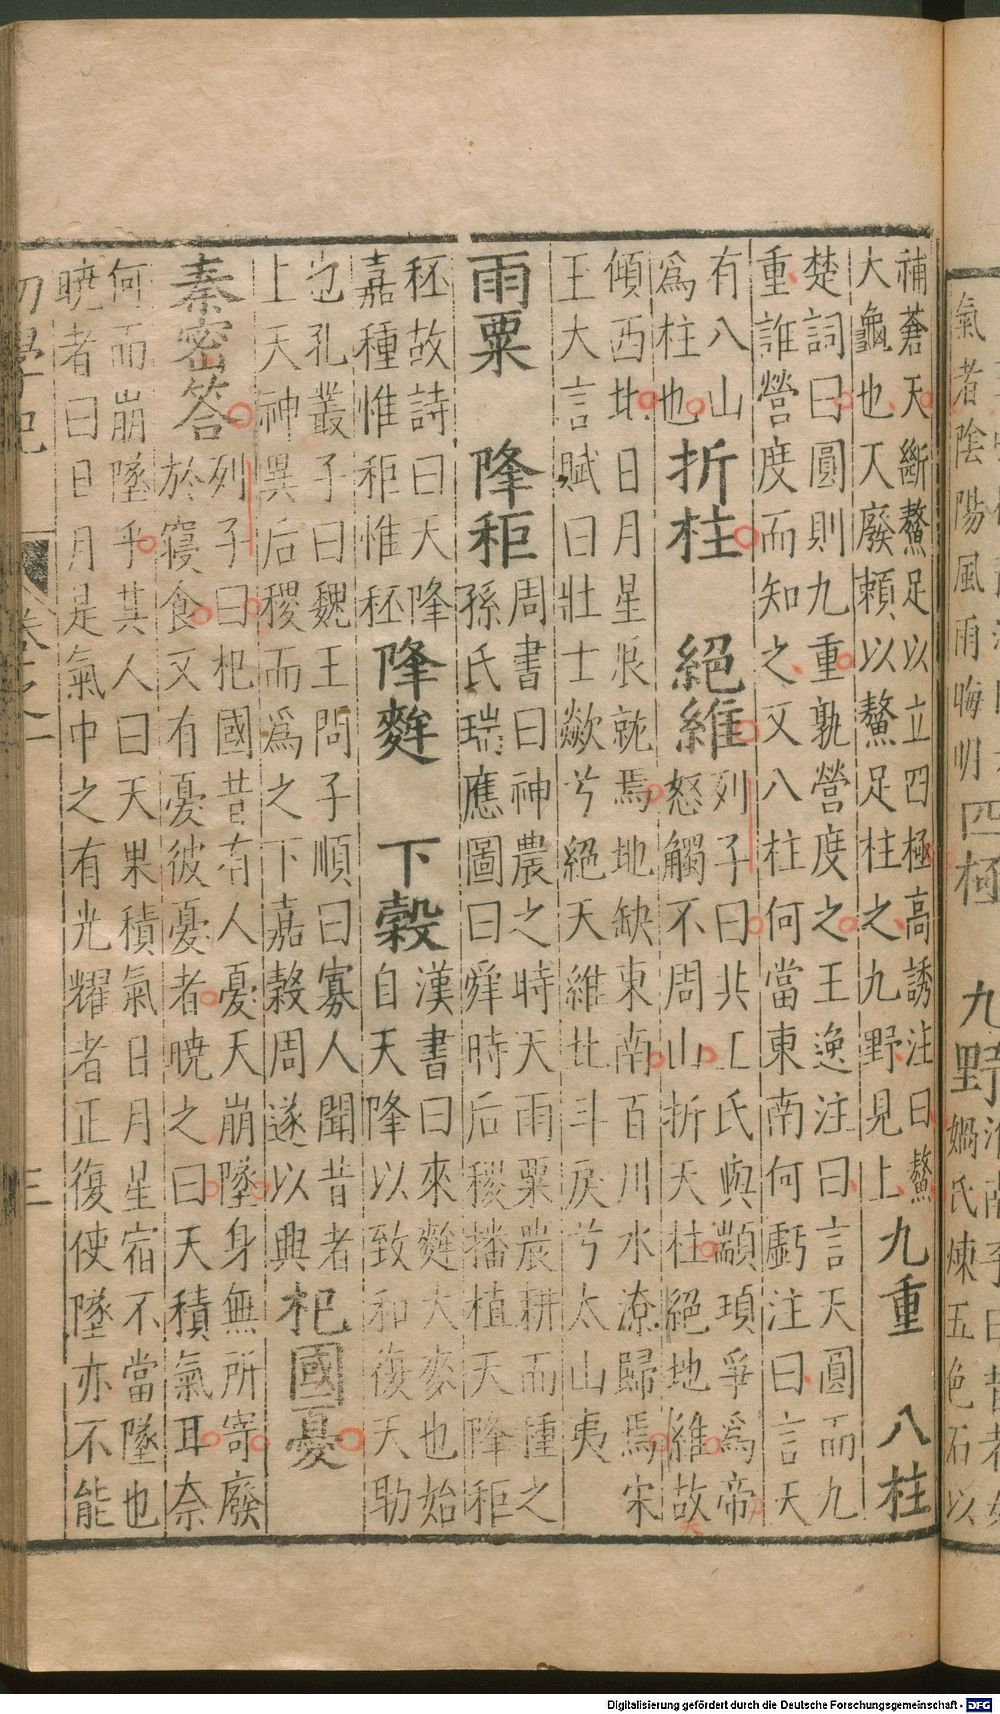 氣者陰陽風雨晦明 四極 九野
媧氏煉五色石以
補蒼天斷鰲足以立四極高誘注曰鰲
大龜也天廢頼以鰲足柱之九野見上
九重 八柱
楚詞曰圓則九重孰營度之王逸注曰言天圓而九
重誰營度而知之又八柱何當東南何虧注曰言天
有八山
爲柱也
折柱 絕維
列子曰共工氏與顓頊爭爲帝
怒觸不周山折天柱絕地維故
傾西北日月星辰就焉地缺東南百川水潦歸焉宋
王大言賦曰壯士歘兮絕天維北斗戾兮太山夷
雨粟 降秬
周書曰神農之時天雨粟農耕而種之
孫氏瑞應圖曰舜時后稷播植天降秬
秠故詩曰天降
嘉種惟秬惟秠
降麰 下穀
漢書曰來麰大麥也始
自天降以致和復天助
也孔叢子曰魏王問子順曰寡人聞昔者
上天神異后稷而爲之下嘉穀周遂以興
杞國憂
秦密答
列子曰杞國昔有人憂天崩墜身無所寄廢
於寢食又有憂彼憂者曉之曰天積氣耳奈
何而崩墜乎其人曰天果積氣日月星宿不當墜也
曉者曰日月是氣中之有光耀者正復使墜亦不能
初學記 卷之一 三
Digitalisierung gefördert durch die Deutsche Forschungsgemeinschaft - DFG